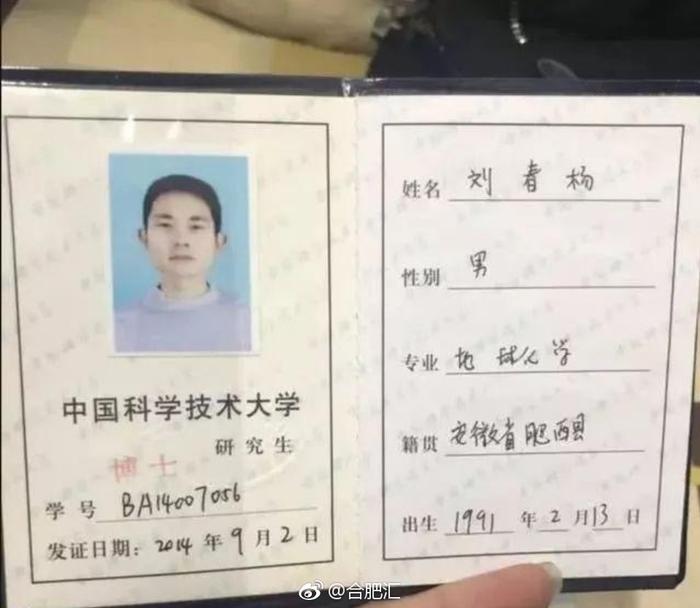 中国科学技术大学
研究生
博士
学号 BA14007056
发证日期：2014年9月2日
姓名 刘春杨
性别 男
专业 地球化学
籍贯 安徽省肥西县
出生 1991年2月13日
@合肥汇